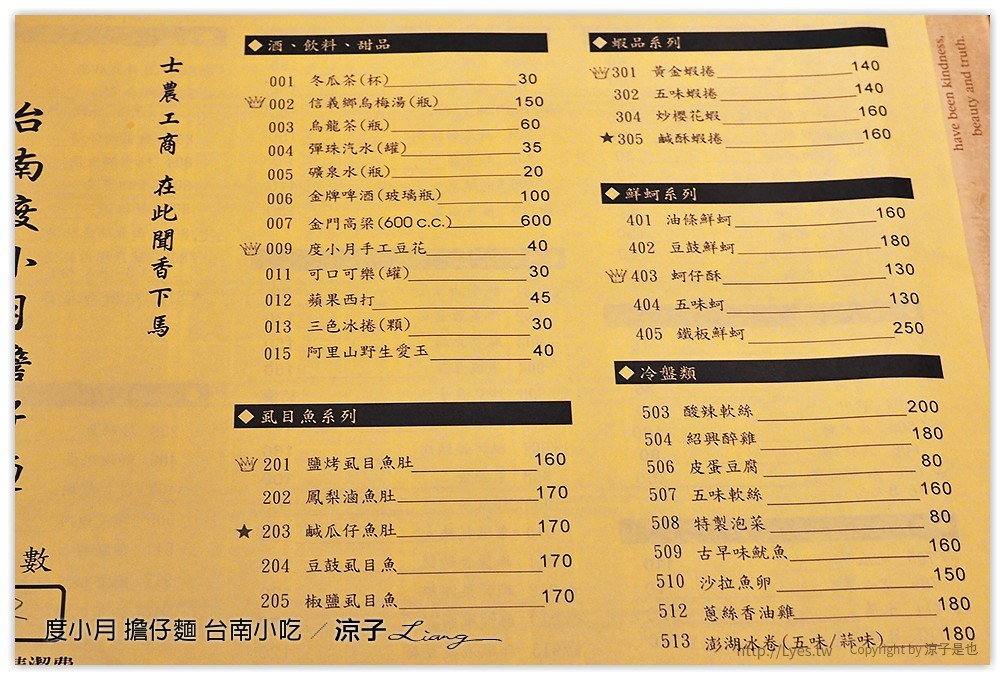 台南度小月擔仔麵
士農工商 在此聞香下馬
數
清潔費
◆酒、飲料、甜品
001 冬瓜茶(杯) 30
002 信義鄉烏梅湯(瓶) 150
003 烏龍茶(瓶) 60
004 彈珠汽水(罐) 35
005 礦泉水(瓶) 20
006 金牌啤酒(玻璃瓶) 100
007 金門高粱(600 c.c.) 600
009 度小月手工豆花 40
011 可口可樂(罐) 30
012 蘋果西打 45
013 三色冰捲(顆) 30
015 阿里山野生愛玉 40
◆虱目魚系列
201 鹽烤虱目魚肚 160
202 鳳梨滷魚肚 170
★203 鹹瓜仔魚肚 170
204 豆鼓虱目魚 170
205 椒鹽虱目魚 170
◆蝦品系列
301 黃金蝦捲 140
302 五味蝦捲 140
304 炒櫻花蝦 160
★305 鹹酥蝦捲 160
◆鮮蚵系列
401 油條鮮蚵 160
402 豆鼓鮮蚵 180
403 蚵仔酥 130
404 五味蚵 130
405 鐵板鮮蚵 250
◆冷盤類
503 酸辣軟絲 200
504 紹興醉雞 180
506 皮蛋豆腐 80
507 五味軟絲 160
508 特製泡菜 80
509 古早味魷魚 160
510 沙拉魚卵 150
512 蔥絲香油雞 180
513 澎湖冰卷(五味/蒜味) 180
have been kindness,
beauty and truth.
度小月 擔仔麵 台南小吃 / 涼子 Liang
http://Lyes.tw Copyright by 涼子是也